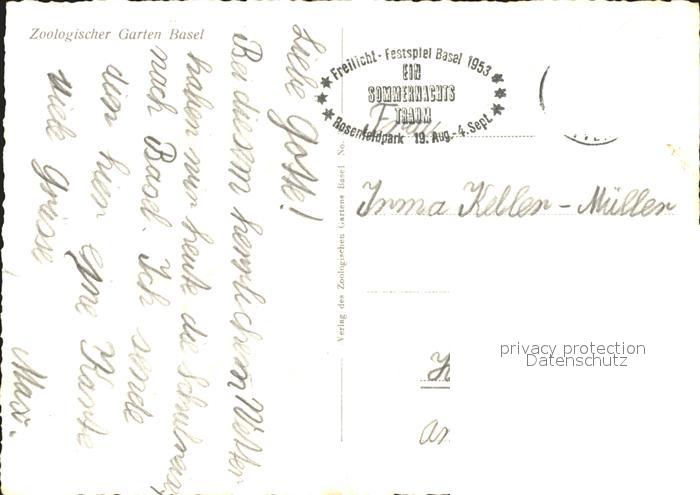 Zoologischer Garten Basel
Liebe Gotte!
Bei diesem herrlichem Wetter
haben wir heute die Schulreise
nach Basel. Ich sende
dir hier eine Karte
Viele Grüsse
Max.
Verlag des Zoologischen Gartens Basel No.
Freilicht-Festspiel Basel 1953
EIN
SOMMERNACHTS
TRAUM
Rosenfeldpark 19. Aug.-4. Sept.
Frau
Irma Keller-Müller
privacy protection
Datenschutz